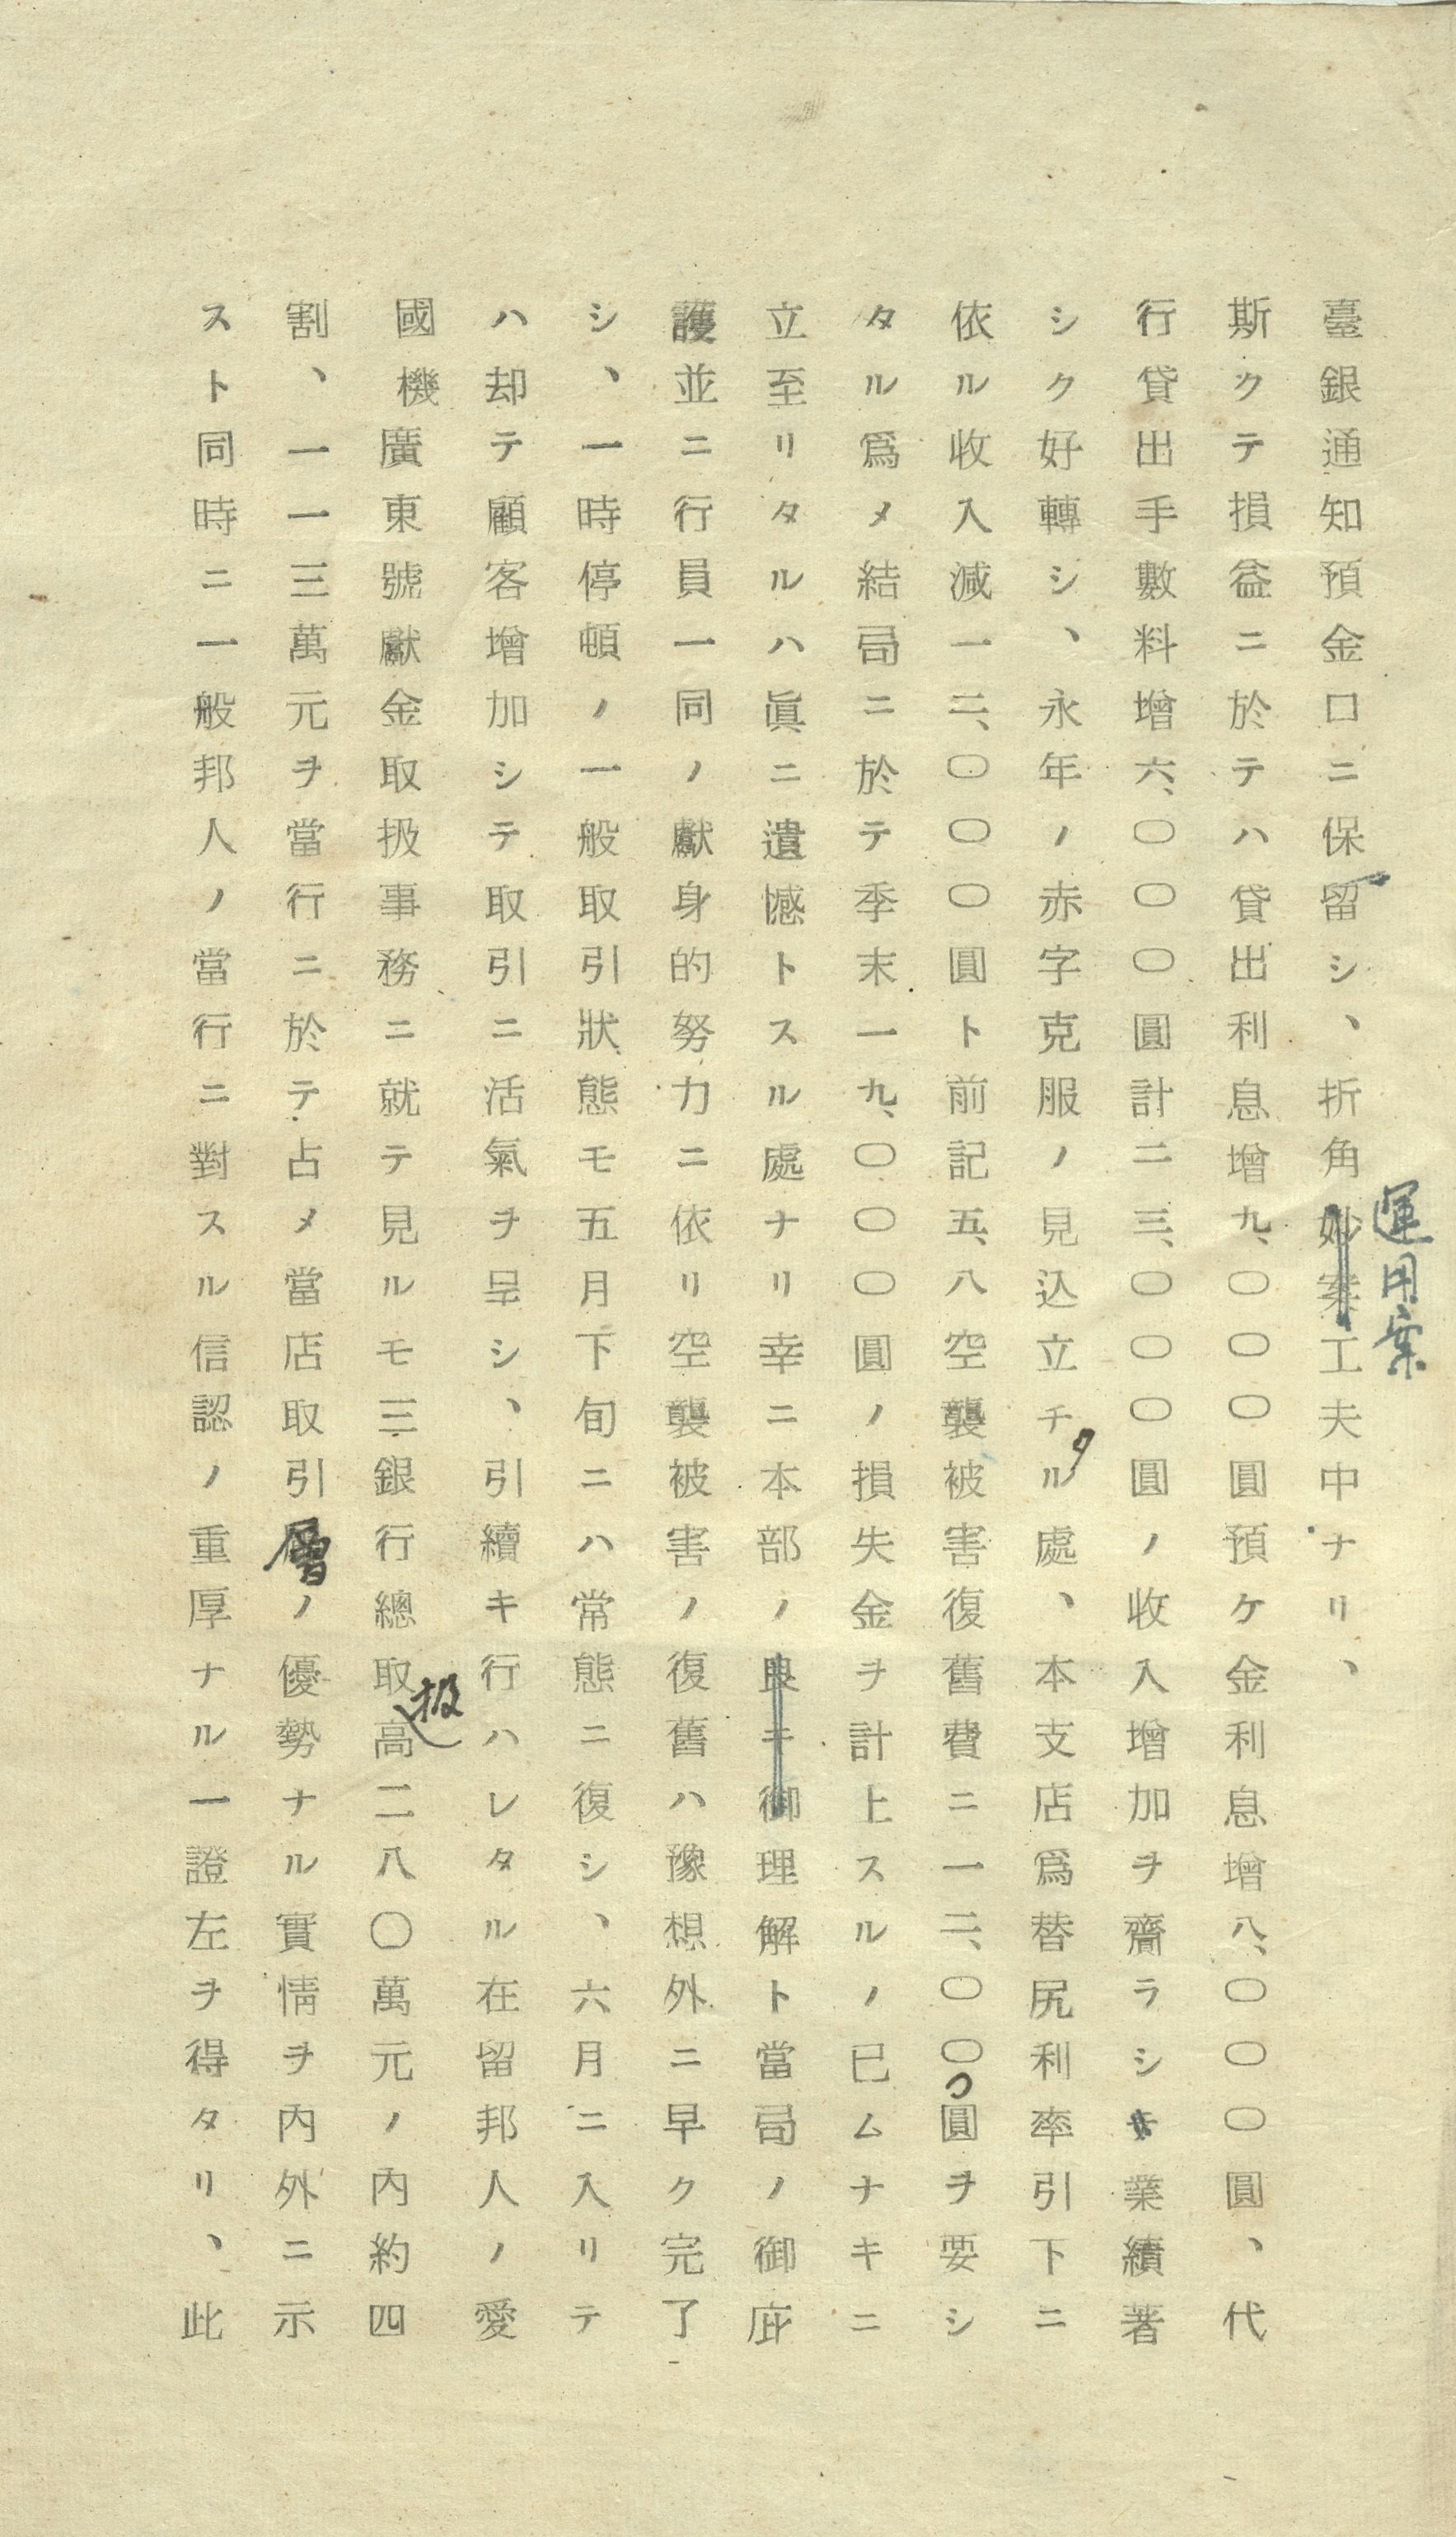 臺銀通知預金口ニ保留シ、折角妙案工夫中ナリ、
運用案
斯クテ損益ニ於テハ貸出利息增九、〇〇〇圓預ケ金利息增八、〇〇〇圓、代
行貸出手數料增六、〇〇〇圓計二三、〇〇〇圓ノ收入增加ヲ齎ラシ業績著
シク好轉シ、永年ノ赤字克服ノ見込立チタル處、本支店爲替尻利率引下ニ
依ル收入減一二、〇〇〇圓ト前記五、八空襲被害復舊費ニ一二、〇〇〇圓ヲ要シ
タル爲メ結局ニ於テ季末一九、〇〇〇圓ノ損失金ヲ計上スルノ已ムナキニ
立至リタルハ眞ニ遺憾トスル處ナリ幸ニ本部ノ良キ御理解ト當局ノ御庇
護並ニ行員一同ノ獻身的努力ニ依リ空襲被害ノ復舊ハ豫想外ニ早ク完了
シ、一時停頓ノ一般取引狀態モ五月下旬ニハ常態ニ復シ、六月ニ入リテ
ハ却テ顧客增加シテ取引ニ活氣ヲ呈シ、引續キ行ハレタル在留邦人ノ愛
國機廣東號獻金取扱事務ニ就テ見ルモ三銀行總取扱高二八〇萬元ノ內約四
割、一一三萬元ヲ當行ニ於テ占メ當店取引層ノ優勢ナル實情ヲ內外ニ示
スト同時ニ一般邦人ノ當行ニ對スル信認ノ重厚ナル一證左ヲ得タリ、此